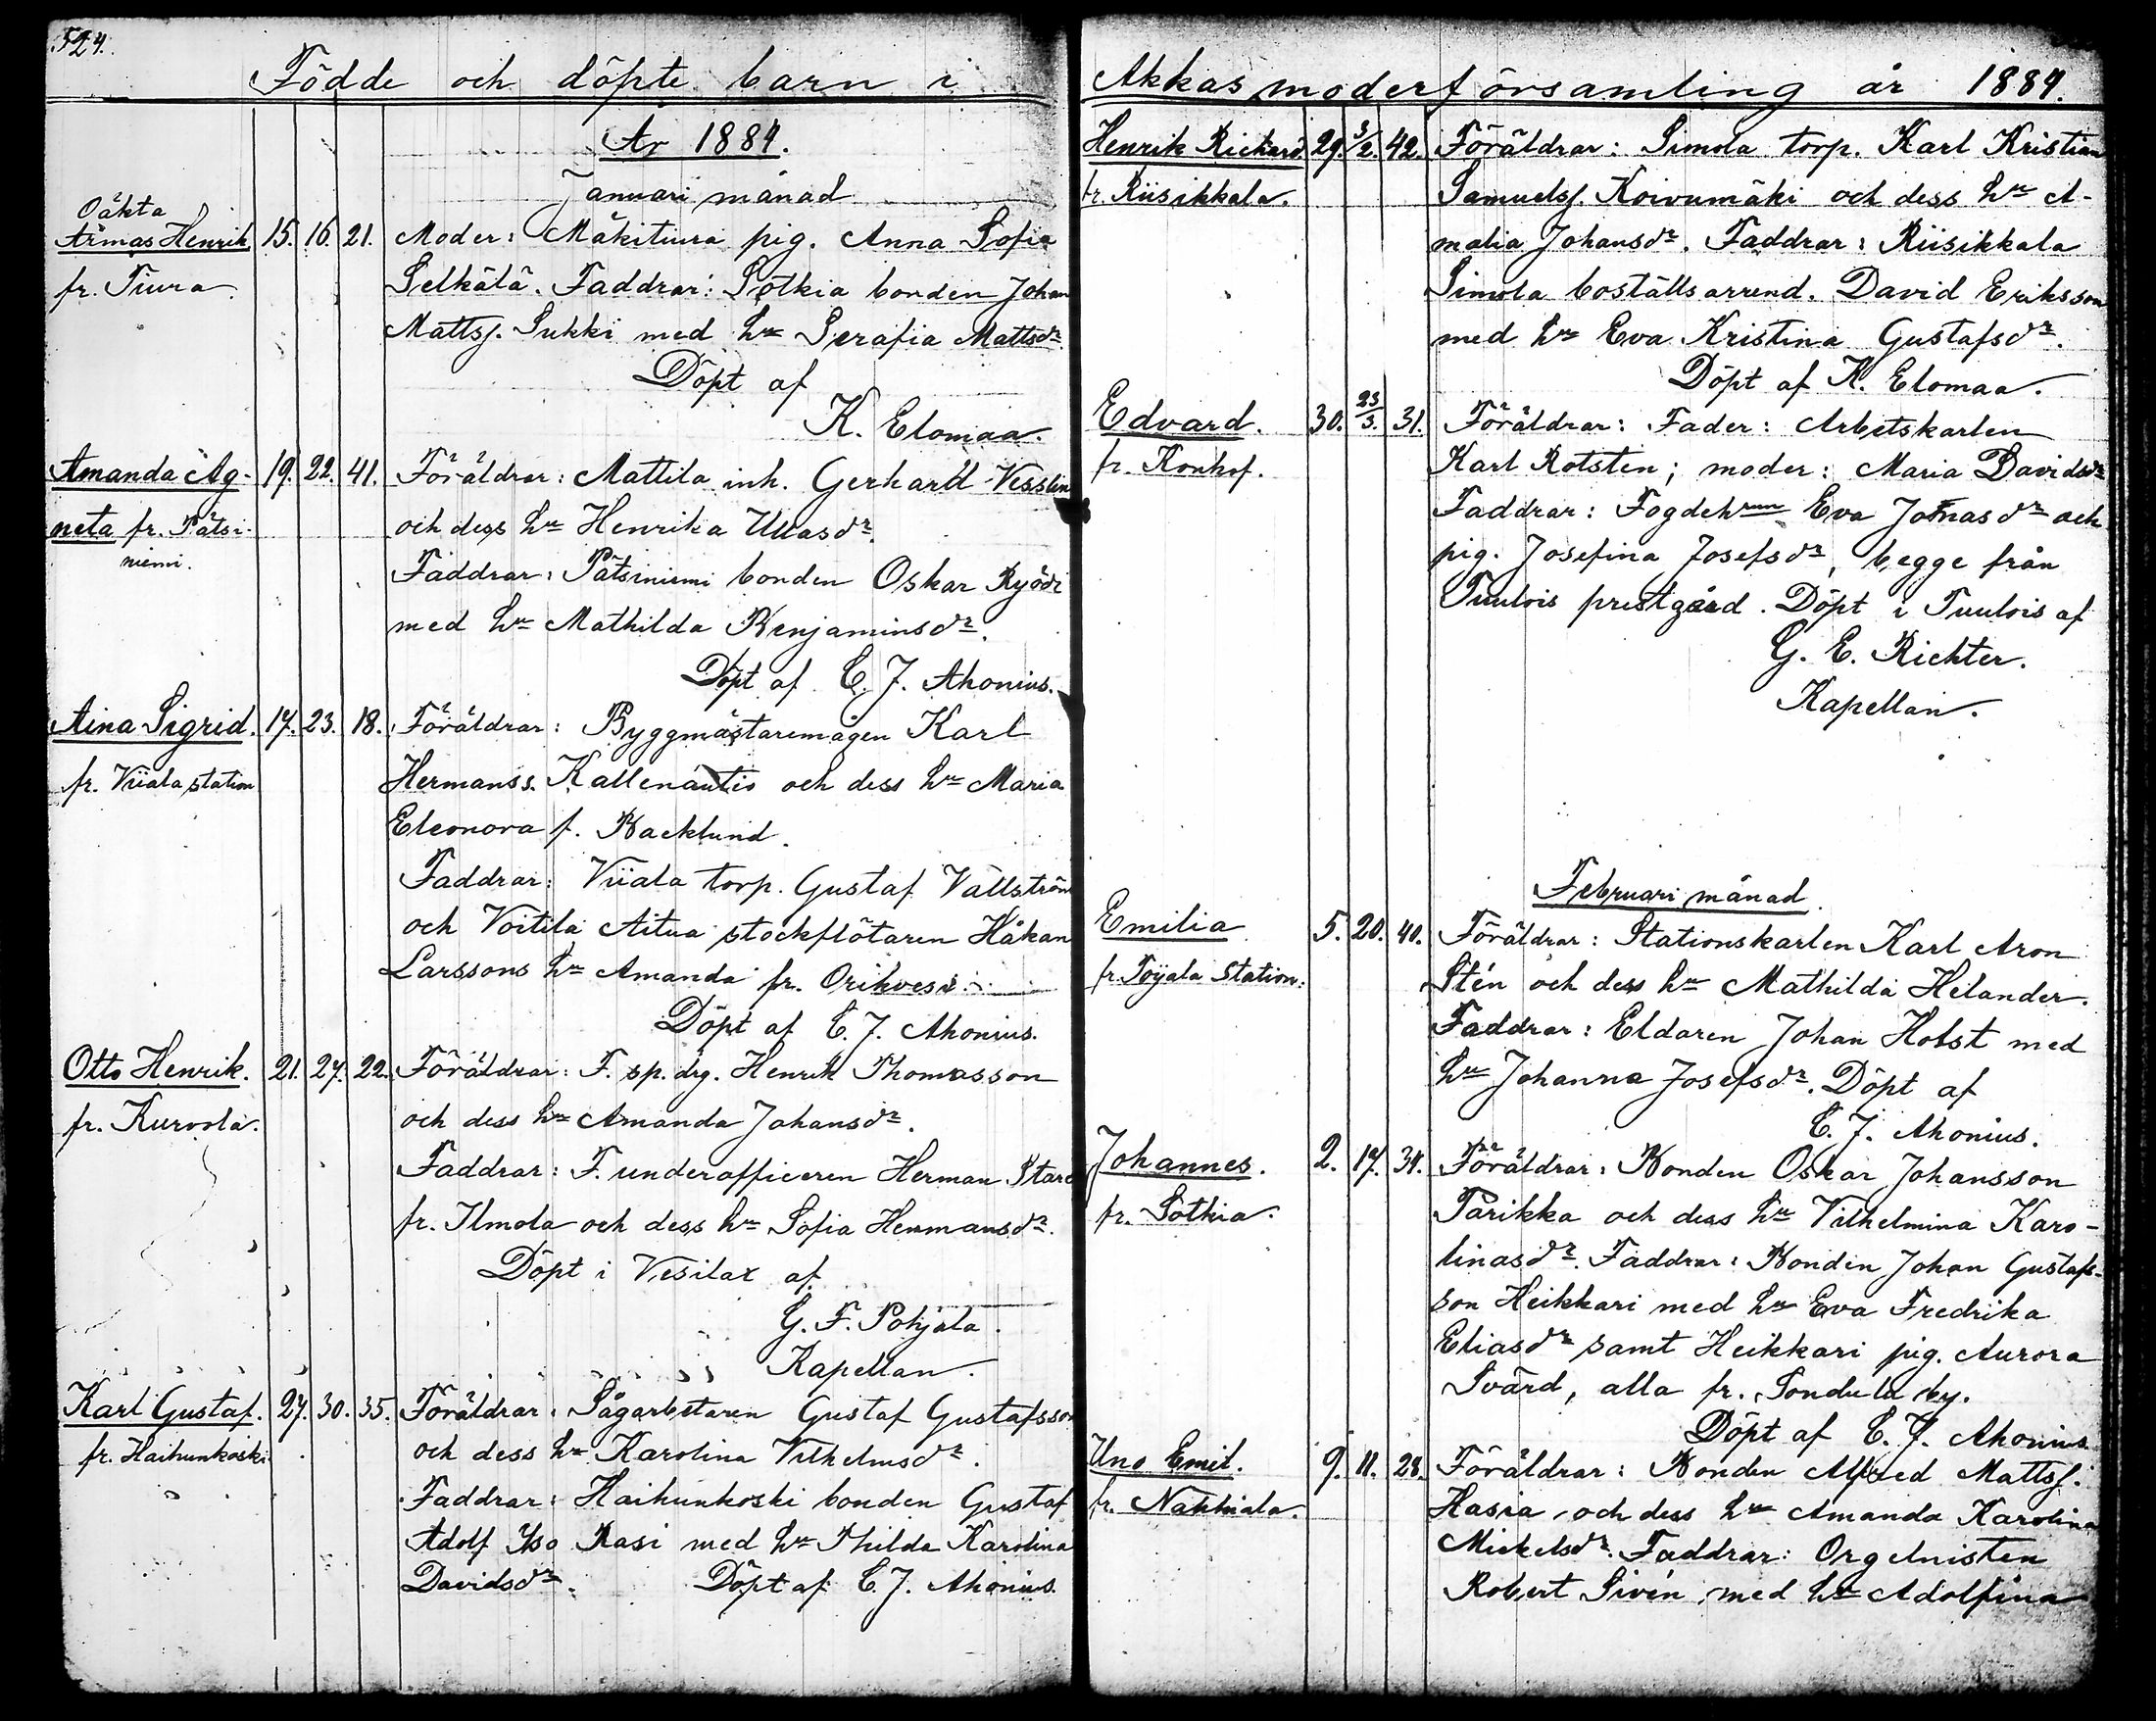 524.
Födde och döpte barn i
År 1884.
Januari månad
Oäkta
Armas Henrik 15. 16. 21. Moder: Mäkitiura pig. Anna Sofia
fr. Tiura. Selkälä. Faddrar: Sotkia bonden Johan
Mattss. Sukki med hu Serafia Mattsdr.
Döpt af
K. Elomaa.
Amanda Ag- 19. 22. 41. Föräldrar: Mattila inh. Gerhard Vesslin
neta fr. Pätsi- och dess hu Henrika Ullasdr.
niemi. Faddrar: Pätsiniemi bonden Oskar Ryödi
med hu Mathilda Benjaminsdr.
Döpt af C. J. Ahonius.
Aina Sigrid. 17. 23. 18. Föräldrar: Byggmästaremågen Karl
fr. Viiala station Hermanss. Kallenautio och dess hu Maria
Eleonora f. Backlund.
Faddrar: Viiala torp. Gustaf Vallström
och Voitila Aitua stockflötaren Håkan
Larssons hu Amanda fr. Orihvesi
Döpt af C. J. Ahonius.
Otto Henrik. 21. 27. 22. Föräldrar: F. sp. drg. Henrik Thomasson
fr. Kurvola. och dess hu Amanda Johansdr.
Faddrar: F. underofficeren Herman Starc
fr. Ilmola och dess hu Sofia Hermansdr.
Döpt i Vesilax af
G. F. Pohjala.
Kapellan.
Karl Gustaf. 27. 30. 35. Föräldrar: Sågarbetaren Gustaf Gustafsson
fr. Haihunkoski och dess hu Karolina Vilhelmsdr.
Faddrar: Haihunkoski bonden Gustaf
Adolf Iso Rasi med hu Thilda Karolina
Davidsdr. Döpt af C. J. Ahonius.
Akkas moderförsamling år 1884.
Henrik Richard 29. 3/2. 42. Föräldrar: Simola torp. Karl Kristian
fr. Riisikkala. Samuelss. Koivumäki och dess hu A-
malia Johansdr. Faddrar: Riisikkala
Simola boställsarrend. David Eriksson
med hu Eva Kristina Gustafsdr.
Döpt af K. Elomaa.
Edvard. 30. 23/3. 31. Föräldrar: Fader: Arbetskarlen
fr. Konhof. Karl Rotsten; moder: Maria Davidsdr
Faddrar: Fogdehrun Eva Jonasdr och
pig. Josefina Josefsdr, begge från
Tuulois prestgård. Döpt i Tuulois af
G. E. Richter.
Kapellan.
Februari månad.
Emilia 5. 20. 40. Föräldrar: Stationskarlen Karl Aron
fr. Toijala Station. Stén och dess hu Mathilda Helander.
Faddrar: Eldaren Johan Holst med
hu Johanna Josefsdr. Döpt af
C. J. Ahonius.
Johannes. 2. 17. 34. Föräldrar: Bonden Oskar Johansson
fr. Sotkia. Parikka och dess hu Vilhelmina Karo-
linasdr. Faddrar: Bonden Johan Gustafs-
son Heikkari med hu Eva Fredrika
Eliasdr samt Heikkari pig. Aurora
Svärd, alla fr. Sondula by.
Döpt af C. J. Ahonius
Uno Emil. 9. 11. 28. Föräldrar: Bonden Alfred Mattss.
fr. Nahkiala. Hasia och dess hu Amanda Karolina
Mickelsdr. Faddrar: Orgelnisten
Robert Sivén med hu Adolfina